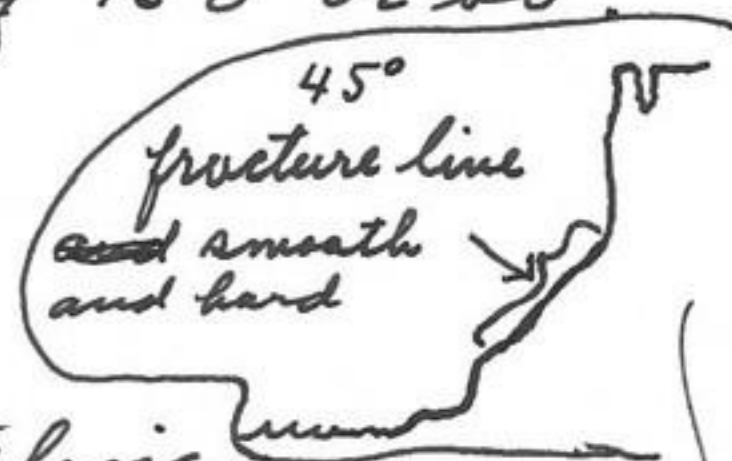 45°
fracture line
and smooth
and hard